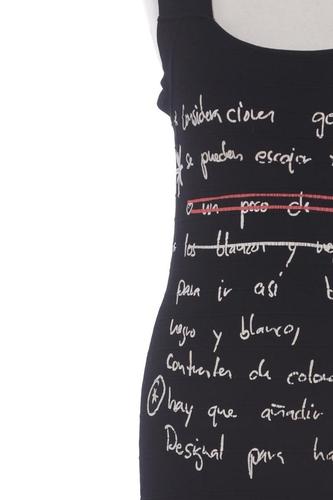 * Consideraciones ge
* se pueden escojer
o un poco de
los blancos y ne
para ir así b
negro y blanco,
contrastes de colore
* hay que añadir
Desigual para ha